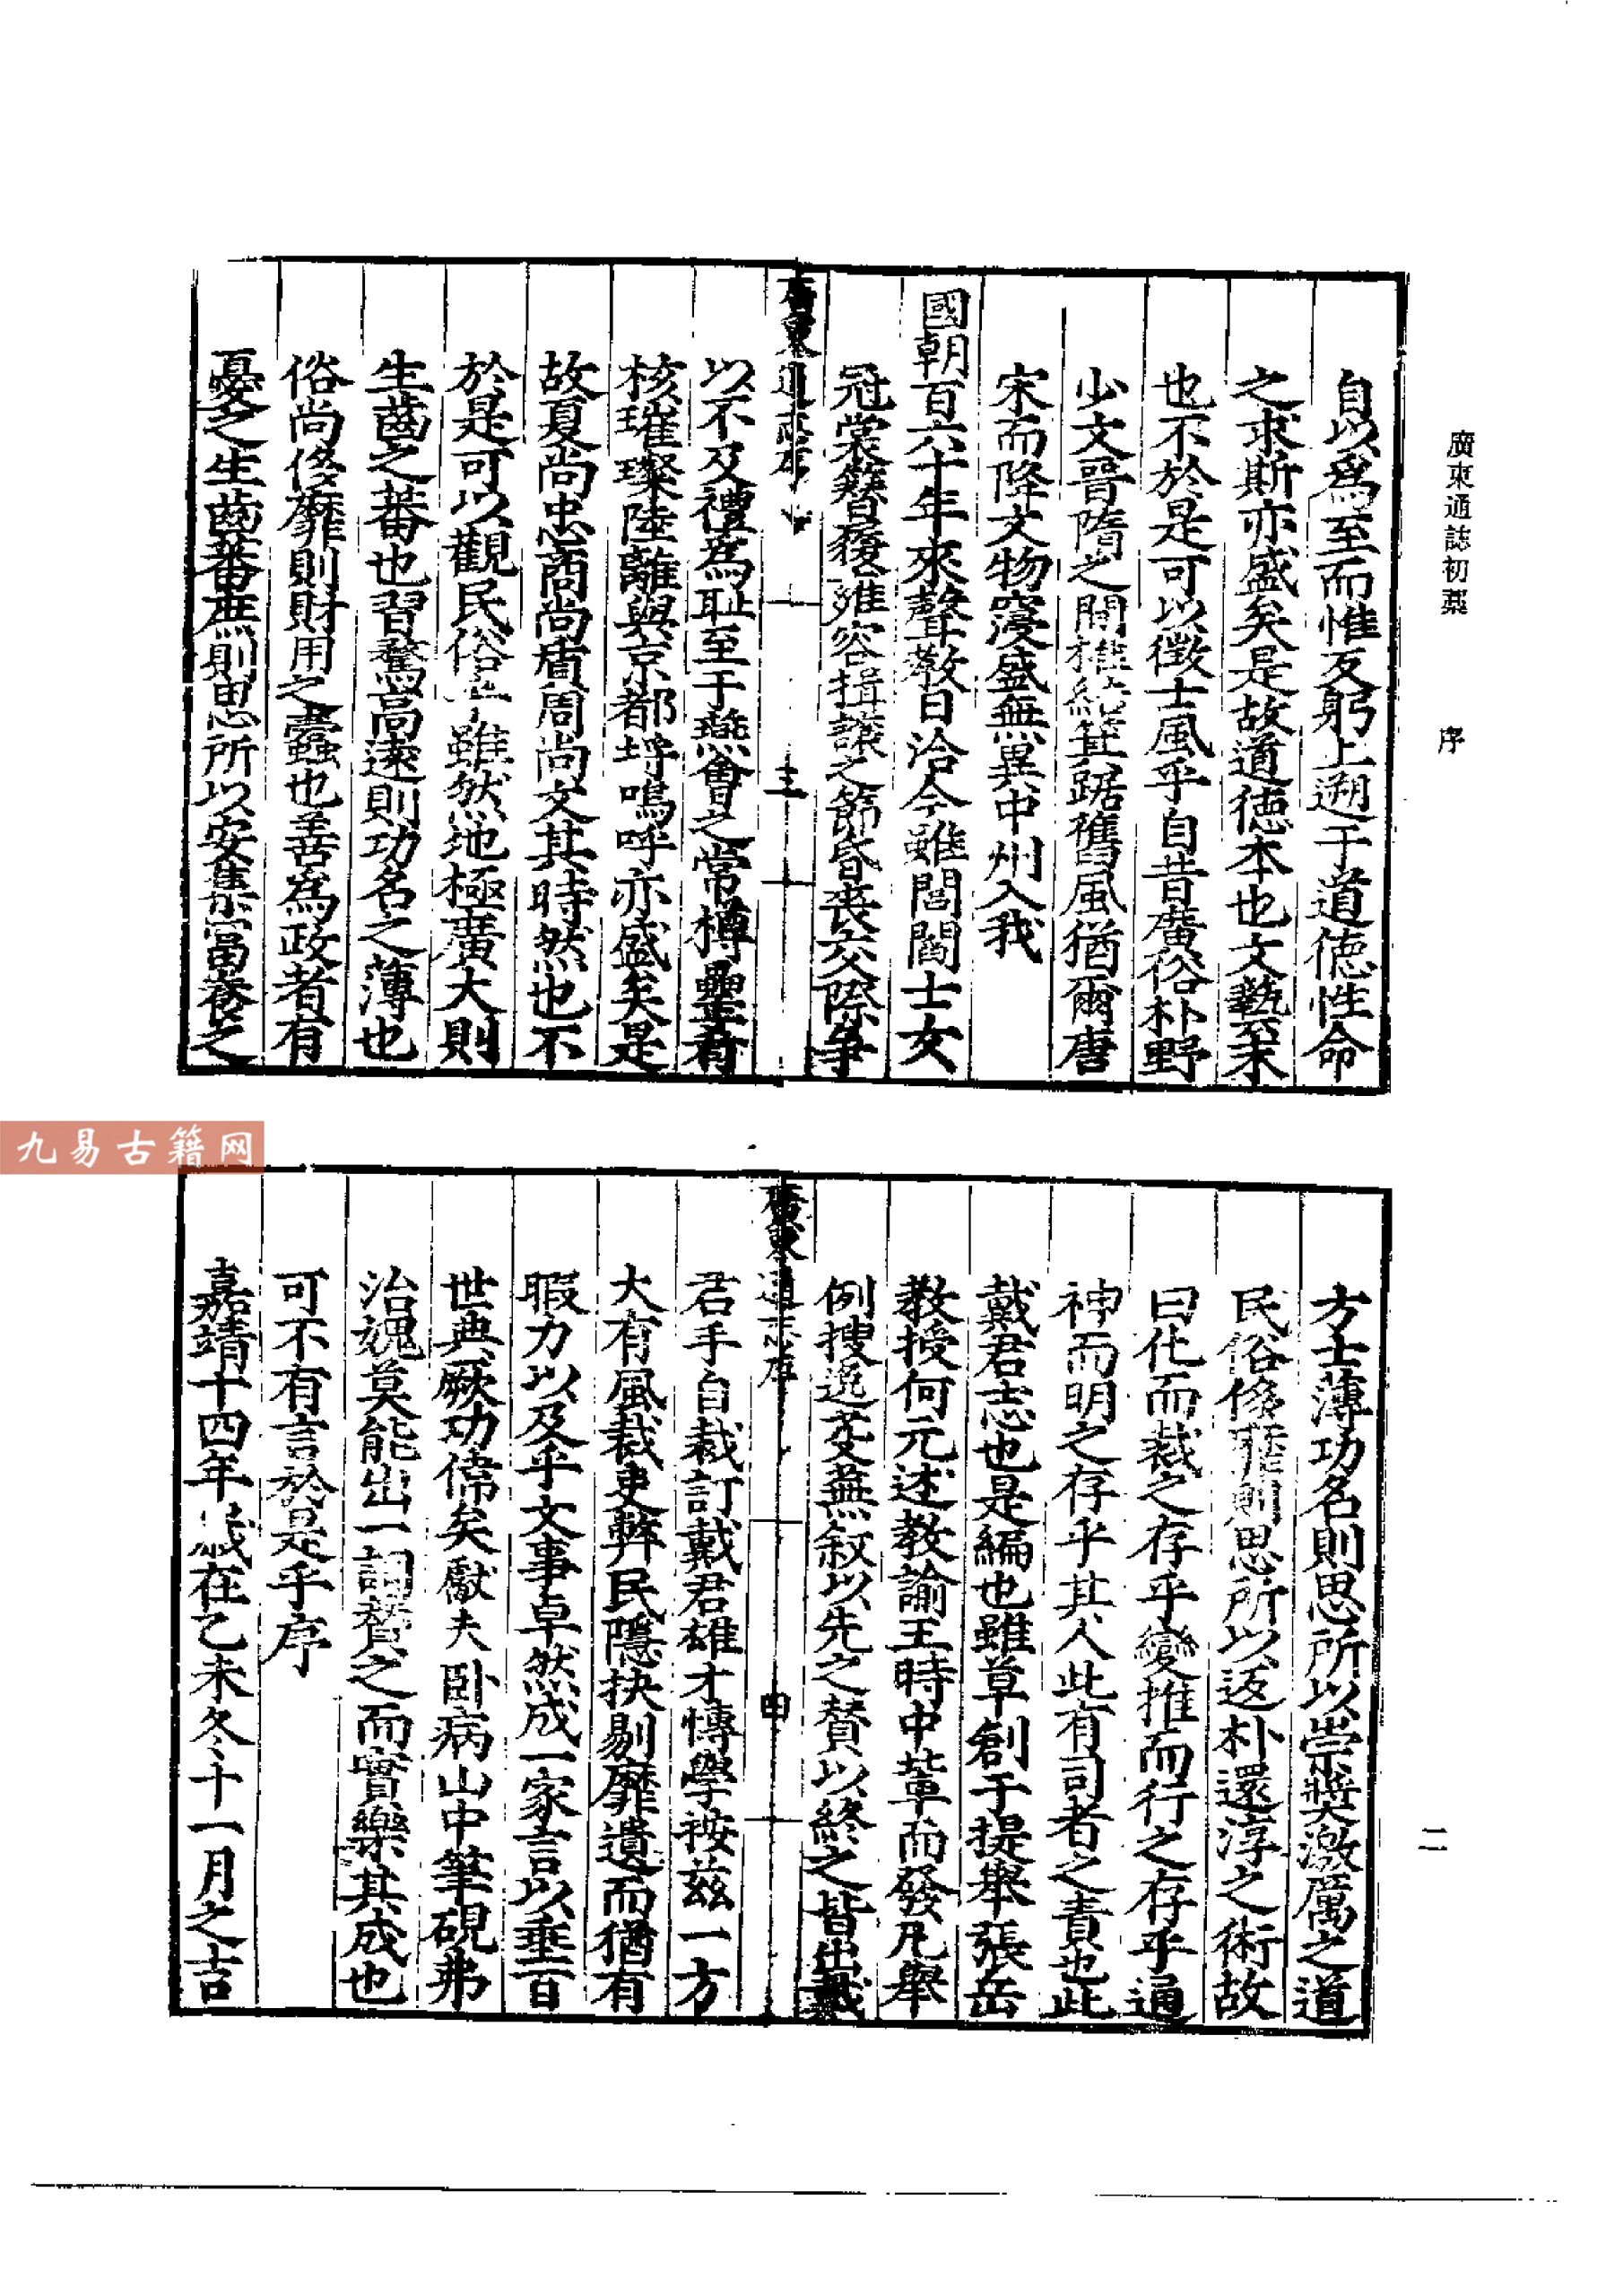 廣東通誌初藁
序
二
自以爲至而惟反躬上遡于道德性命
之求斯亦盛矣是故道德本也文藝至末
也不於是可以徵士風乎自昔廣俗朴野
少文晉隋之間椎結箕踞舊風猶爾唐
宋而降文物寖盛無異中州入我
國朝百六十年來聲教日洽今雖閭閻士女
冠裳簪雍容揖讓之節昏喪交際争
廣東通志序
三
以不及禮爲恥至于燕會之常樽罍肴
核璀璨陸離與京都埒嗚呼亦盛矣是
故夏尚忠商尚質周尚文其時然也不
於是可以觀民俗乎雖然地極廣大則
生齒之蕃也習騖高遠則功名之薄也
俗尚侈靡則財用之蠹也善爲政者有
憂之生齒蕃庶則思所以安集富養之
方士薄功名則思所以崇獎激厲之道
民俗侈靡則思所以返朴還淳之術故
曰化而裁之存乎變推而行之存乎通
神而明之存乎其人此有司者之責也此
戴君志也是編也雖草創于提舉張岳
教授何元述教諭王時中軰而發凡舉
例搜逸芟蕪叙以先之賛以終之皆出戴
廣東通志序
四
君手自裁訂戴君雄才愽學按茲一方
大有風裁吏弊民隱抉剔靡遺而猶有
暇力以及乎文事卓然成一家言以垂百
世典厥功偉矣獻夫卧病山中筆硯弗
治媿莫能出一詞賛之而實樂其成也
可不有言於是乎序
嘉靖十四年歲在乙未冬十一月之吉
九易古籍网